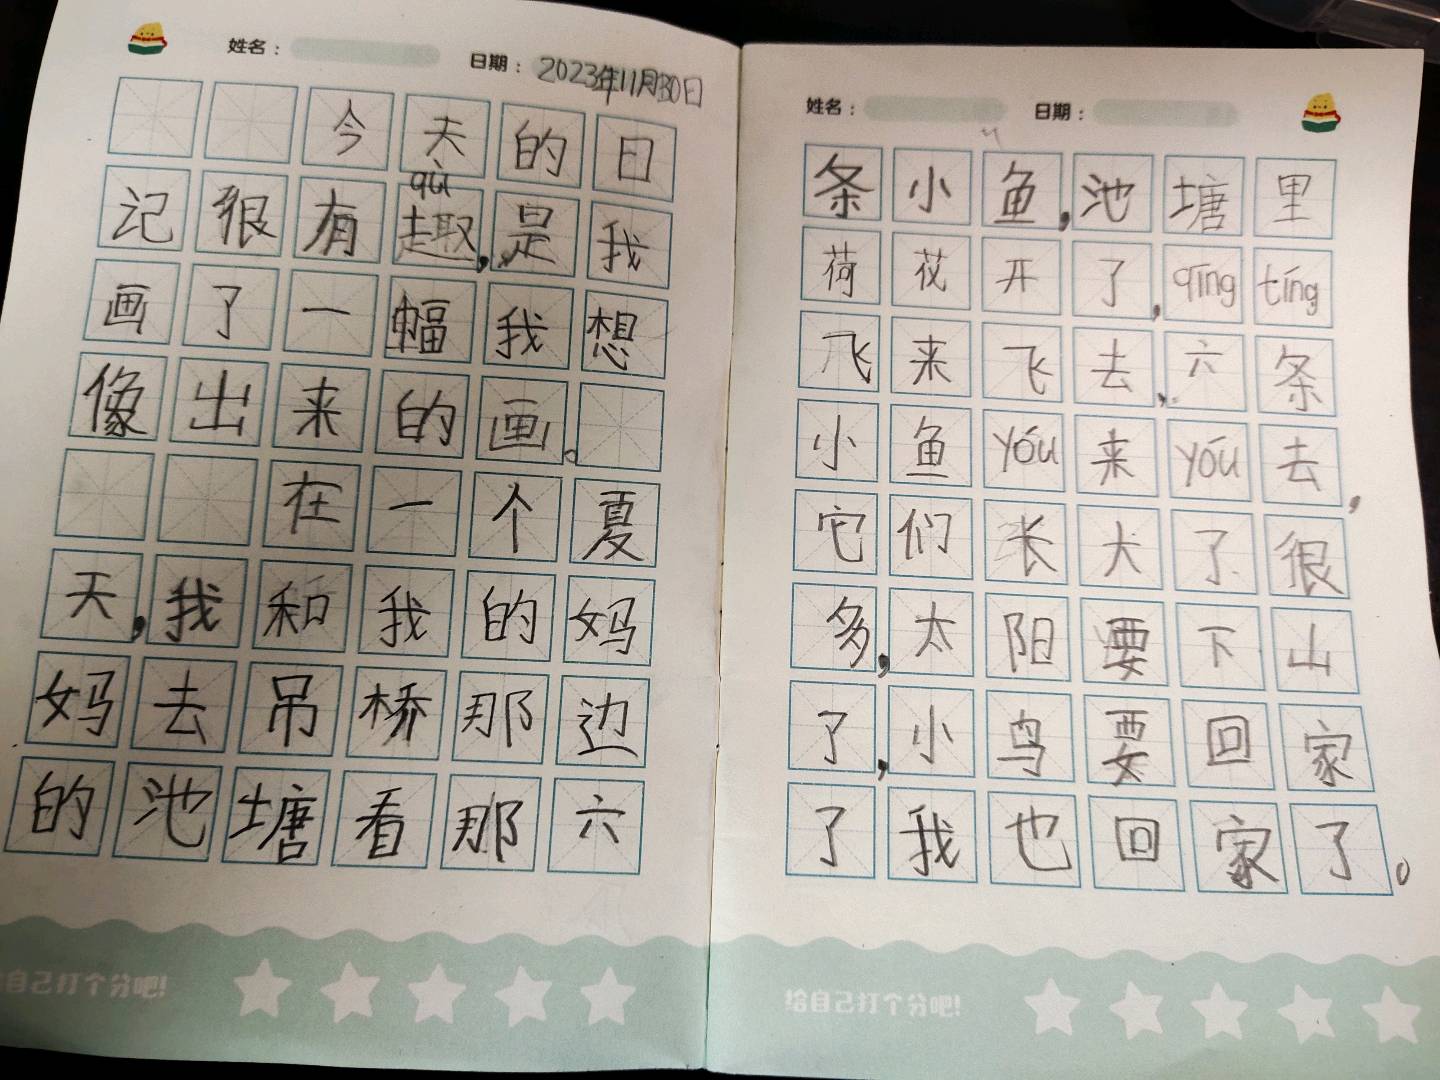 姓名： 日期：2023年11月30日
今天的日
qù
记很有趣,是我
画了一蝠我想
像出来的画。
在一个夏
天,我和我的妈
妈去吊桥那边
的池塘看那六
自己打个分吧!
姓名： 日期：
条小鱼,池塘里
荷花开了,qīng tíng
飞来飞去,六条
小鱼yóu来yóu去,
它们长大了很
多,太阳要下山
了,小鸟要回家
了我也回家了。
给自己打个分吧!